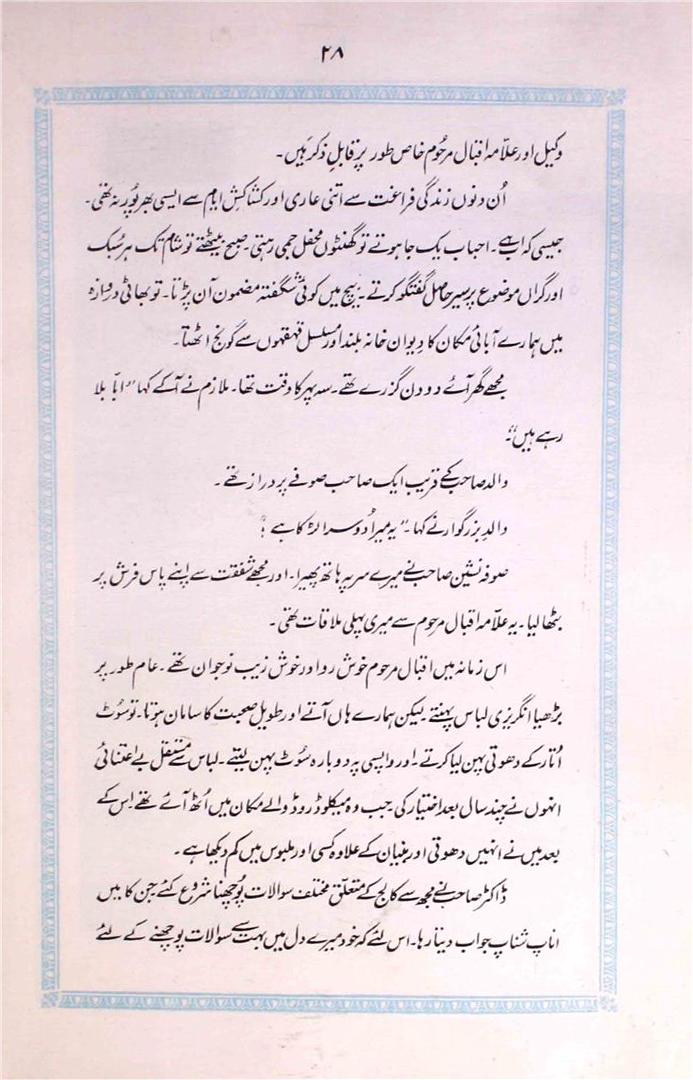 ۲۸
وکیل اور علّامہ اقبال مرحُوم خاص طور پر قابلِ ذکر ہیں۔
اُن دنوں زندگی فراغت سے اتنی عاری اور کشاکشِ ایام سے ایسی بھرپُور نہ تھی۔
جیسی کہ اب ہے۔ احباب یک جا ہوتے تو گھنٹوں محفل جمی رہتی۔ صبح بیٹھتے تو شام تک ہر سُبک
اور گراں موضوع پر سیر حاصل گفتگو کرتے۔ بیچ میں کوئی شگفتہ مضمون آن پڑتا۔ تو بھاٹی دروازہ
میں ہمارے آبائی مکان کا دِیوان خانہ بلند اور مسلسل قہقہوں سے گونج اٹھتا۔
مجھے گھر آئے دو دن گزرے تھے۔ سہ پہر کا وقت تھا۔ ملازم نے آکے کہا "ابّا بلا
رہے ہیں"۔
والد صاحب کے قریب ایک صاحب صوفے پر دراز تھے۔
والدِ بزرگوار نے کہا۔ "یہ میرا دُوسرا لڑکا ہے"؛
صوفہ نشین صاحب نے میرے سر پہ ہاتھ پھیرا۔ اور مجھے شفقت سے اپنے پاس فرش پر
بٹھا لیا۔ یہ علّامہ اقبال مرحوم سے میری پہلی ملاقات تھی۔
اس زمانہ میں اقبال مرحوم خوش رو اور خوش زیب نوجوان تھے۔ عام طور پر
بڑھیا انگریزی لباس پہنتے لیکن ہمارے ہاں آتے اور طویل صحبت کا سامان ہوتا۔ تو سُوٹ
اُتار کے دھوتی پہن لیا کرتے۔ اور واپسی پہ دوبارہ سُوٹ پہن لیتے۔ لباس سے مستقل بے اعتنائی
انہوں نے چند سال بعد اختیار کی جب وہ میکلوڈ روڈ والے مکان میں اُٹھ آئے تھے اِس کے
بعد میں نے انہیں دھوتی اور بنیان کے علاوہ کسی اور ملبوس میں کم دیکھا ہے۔
ڈاکٹر صاحب نے مجھ سے کالج کے متعلّق مختلف سوالات پُوچھنا شروع کئے جن کا میں
اناپ شناپ جواب دیتا رہا۔ اس لئے کہ خود میرے دل میں بہت سے سوالات پوچھنے کے لئے